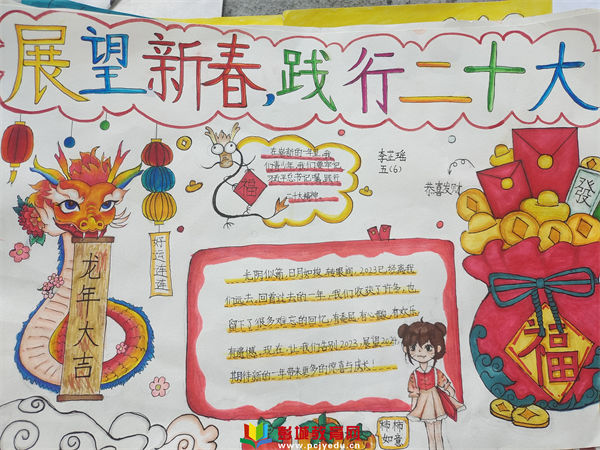 展望新春,践行二十大
在崭新的一年里,我
们青少年,我们要牢记
习近平总书记嘱
二十大精神
李芷瑶
五(6)
恭喜发财
福
發
好运连连
龙年大吉
光阴似箭,日月如梭,转眼间,2023已经离我
们远去,回首过去的一年,我们收获了许多,也
留下了很多难忘的回忆,有委屈有心酸,有欢乐
有遗憾,现在,让我们告别2023,展望2024
期待新的一年带来更多的惊喜与成长!
福
柿柿
如意
彭城教育网
www.pcjyedu.cn